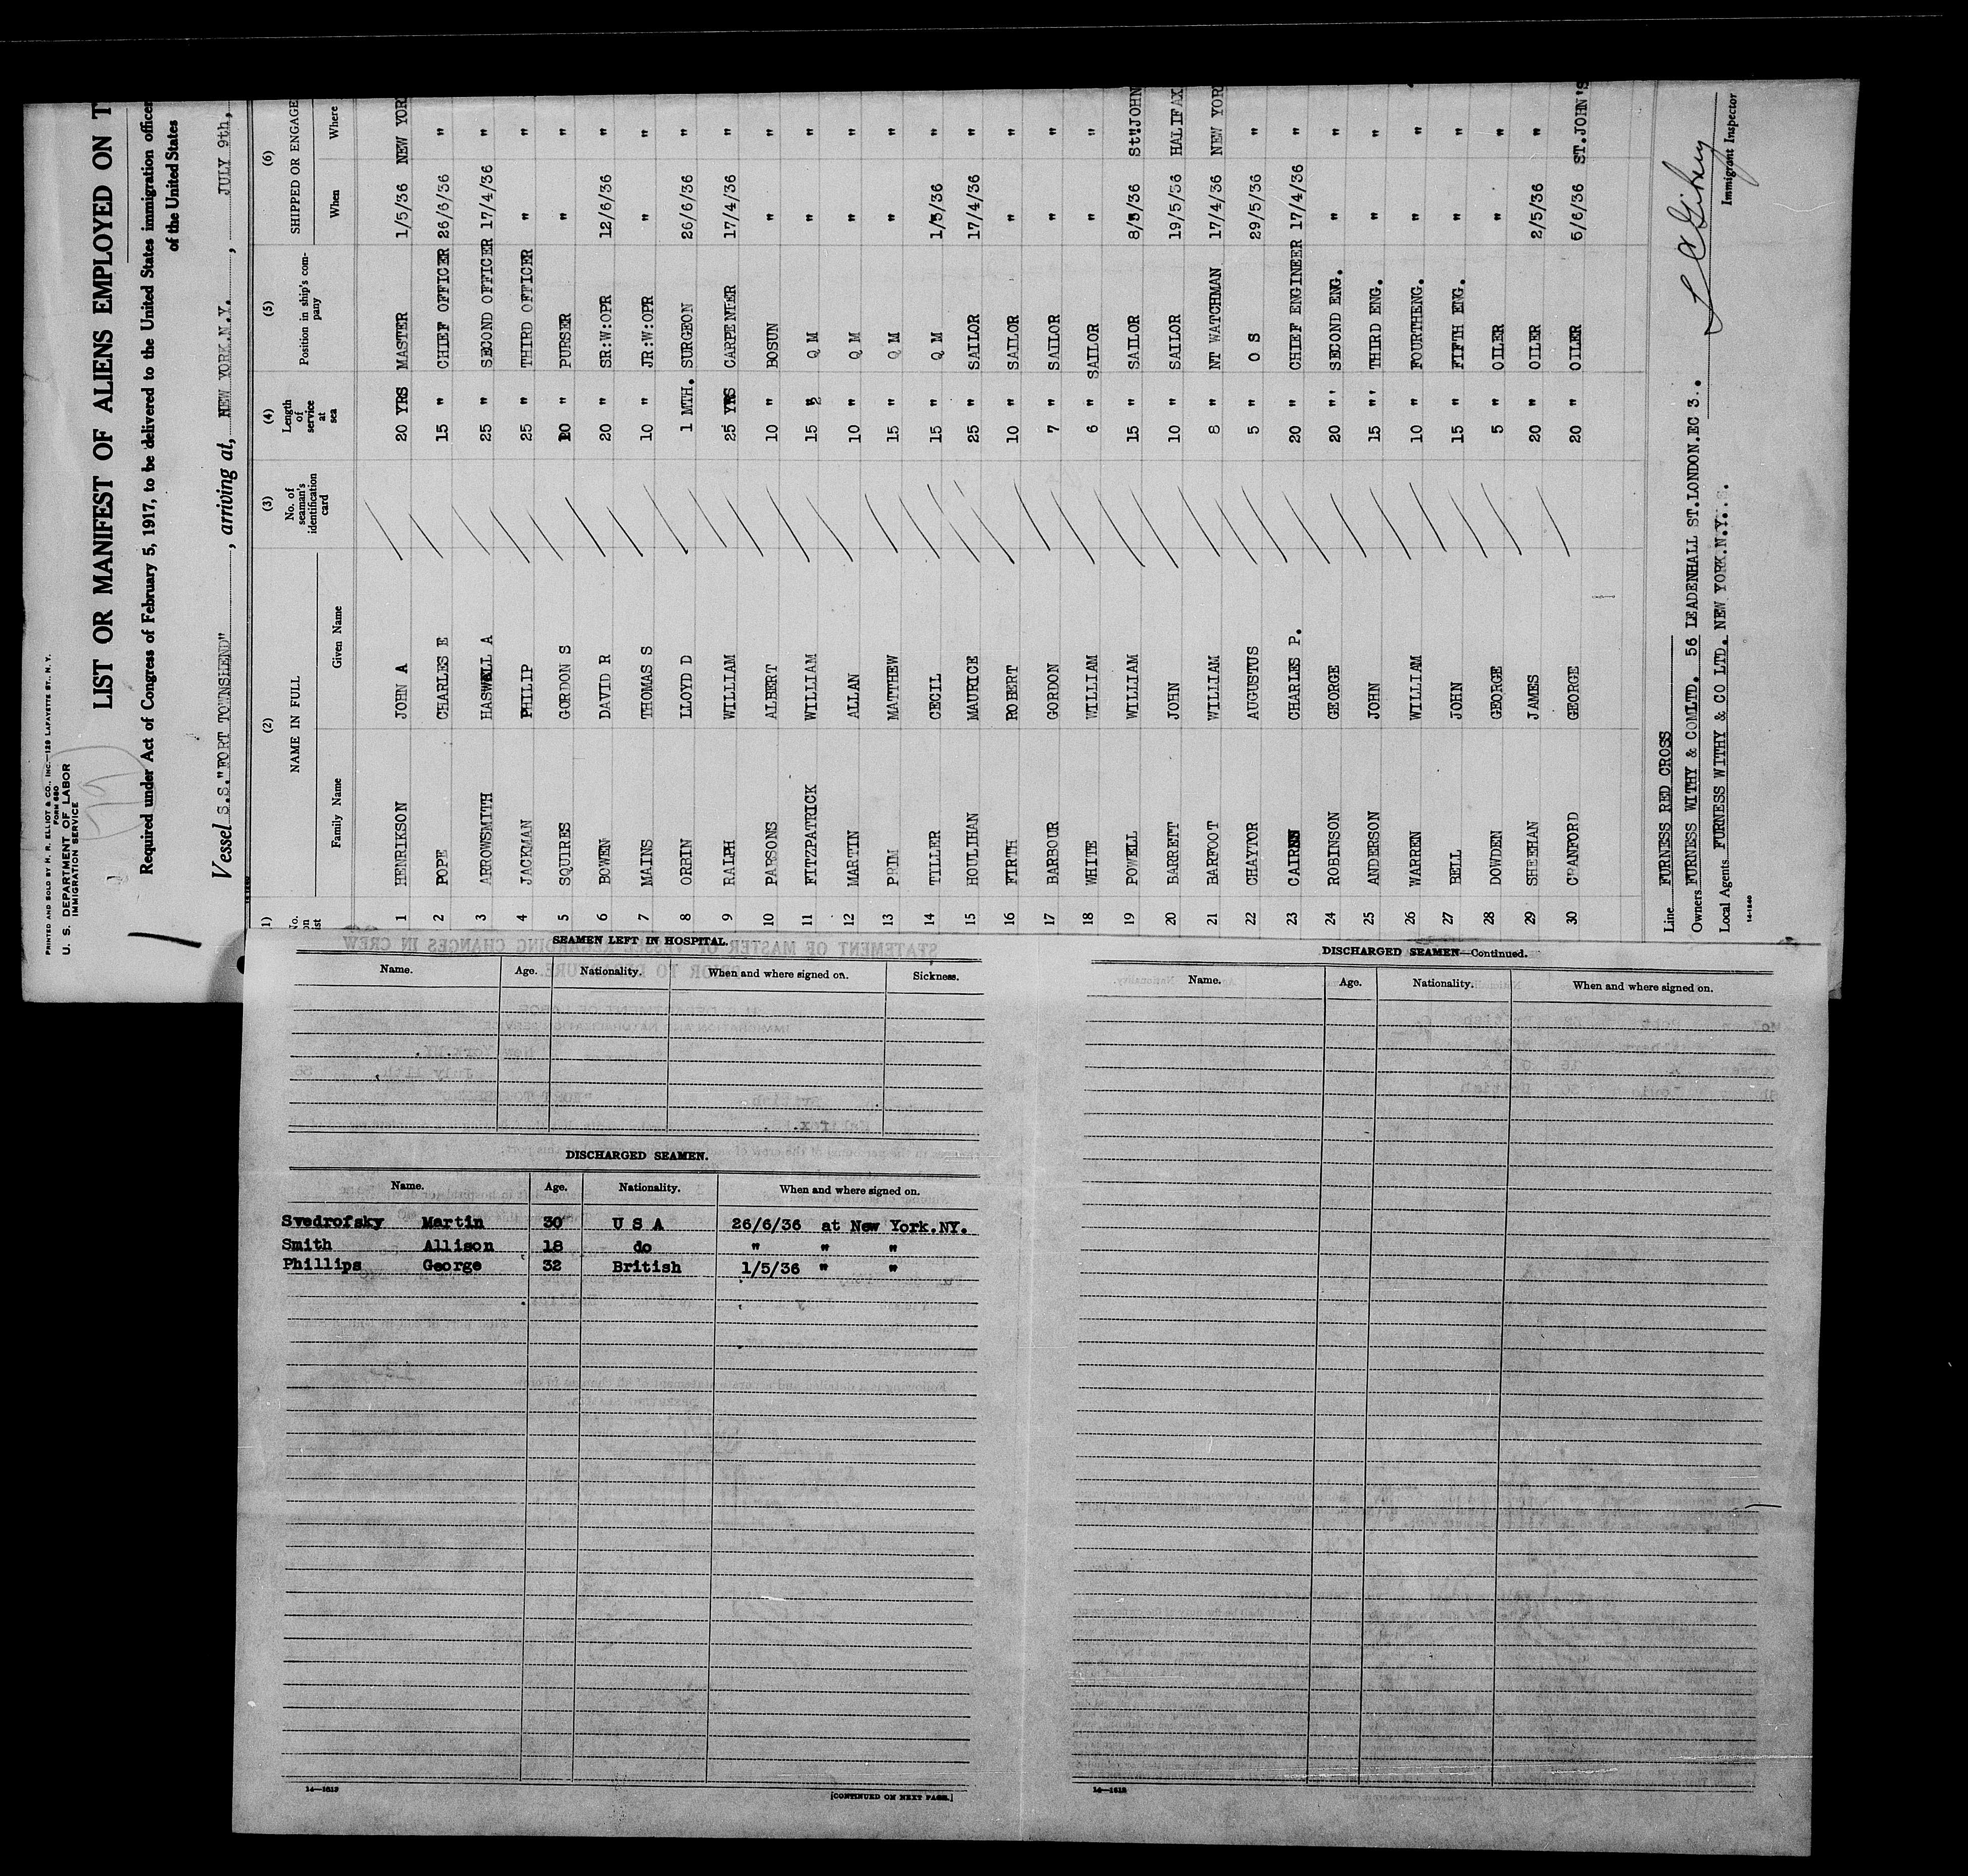 PRINTED AND SOLD BY H. R. ELLIOT & CO., INC.—129 LAFAYETTE ST., N. Y.
FORM 680
U. S. DEPARTMENT OF LABOR
IMMIGRATION SERVICE
LIST OR MANIFEST OF ALIENS EMPLOYED ON T
Required under Act of Congress of February 5, 1917, to be delivered to the United States immigration officer
of the United States
Vessel S.S."FORT TOWNSHEND" , arriving at, NEW YORK.N.Y. , JULY 9th,
(1) (2) (3) (4) (5) (6)
No. on list NAME IN FULL No. of seaman's identification card Length of service at sea Position in ship's company SHIPPED OR ENGAGE
Family Name Given Name When Where
1 HENRIKSON JOHN A 20 YRS MASTER 1/5/36 NEW YORK
2 POPE CHARLES E 15 " CHIEF OFFICER 26/6/36 "
3 ARROWSMITH HASWELL A 25 " SECOND OFFICER 17/4/36 "
4 JACKMAN PHILIP 25 " THIRD OFFICER " "
5 SQUIRES GORDON S 20 " PURSER " "
6 BOWEN DAVID R 20 " SR:W:OPR 12/6/36 "
7 MAINS THOMAS S 10 " JR:W:OPR " "
8 ORRIN LLOYD D 1 MTH. SURGEON 26/6/36 "
9 RALPH WILLIAM 25 YRS CARPENTER 17/4/36 "
10 PARSONS ALBERT 10 " BOSUN " "
11 FITZPATRICK WILLIAM 15 " Q M " "
12 MARTIN ALLAN 10 " Q M " "
13 PRIM MATTHEW 15 " Q M " "
14 TILLER CECIL 15 " Q M 1/5/36 "
15 HOULIHAN MAURICE 25 " SAILOR 17/4/36 "
16 FIRTH ROBERT 10 " SAILOR " "
17 BARBOUR GORDON 7 " SAILOR " "
18 WHITE WILLIAM 6 " SAILOR " "
19 POWELL WILLIAM 15 " SAILOR 8/5/36 St"JOHN
20 BARRETT JOHN 10 " SAILOR 19/5/36 HALIFAX
21 BARFOOT WILLIAM 8 " NT WATCHMAN 17/4/36 NEW YOR
22 CHAYTOR AUGUSTUS 5 " O S 29/5/36 "
23 CAIRNS CHARLES P. 20 " CHIEF ENGINEER 17/4/36 "
24 ROBINSON GEORGE 20 "' SECOND ENG. " "
25 ANDERSON JOHN 15 "' THIRD ENG. " "
26 WARREN WILLIAM 10 " FOURTHENG. " "
27 BELL JOHN 15 " FIFTH ENG. " "
28 DOWDEN GEORGE 5 " OILER " "
29 SHEEHAN JAMES 20 " OILER 2/5/36 "
30 CRANFORD GEORGE 20 " OILER 5/6/36 ST.JOHN'S
Line FURNESS RED CROSS
Owners FURNESS WITHY & COMLTD. 56 LEADENHALL ST.LONDON.EC 3..
Local Agents FURNESS WITHY & CO LTD. NEW YORK.N.Y.
Immigrant Inspector
14-1240
SEAMEN LEFT IN HOSPITAL.
Name. Age. Nationality. When and where signed on. Sickness.
DISCHARGED SEAMEN.
Name. Age. Nationality. When and where signed on.
Svedrofsky Martin 30 U S A 26/6/36 at New York.NY.
Smith Allison 18 do " " "
Phillips George 32 British 1/5/36 " "
14—1613
[CONTINUED ON NEXT PAGE.]
DISCHARGED SEAMEN—Continued.
Name. Age. Nationality. When and where signed on.
14—1613